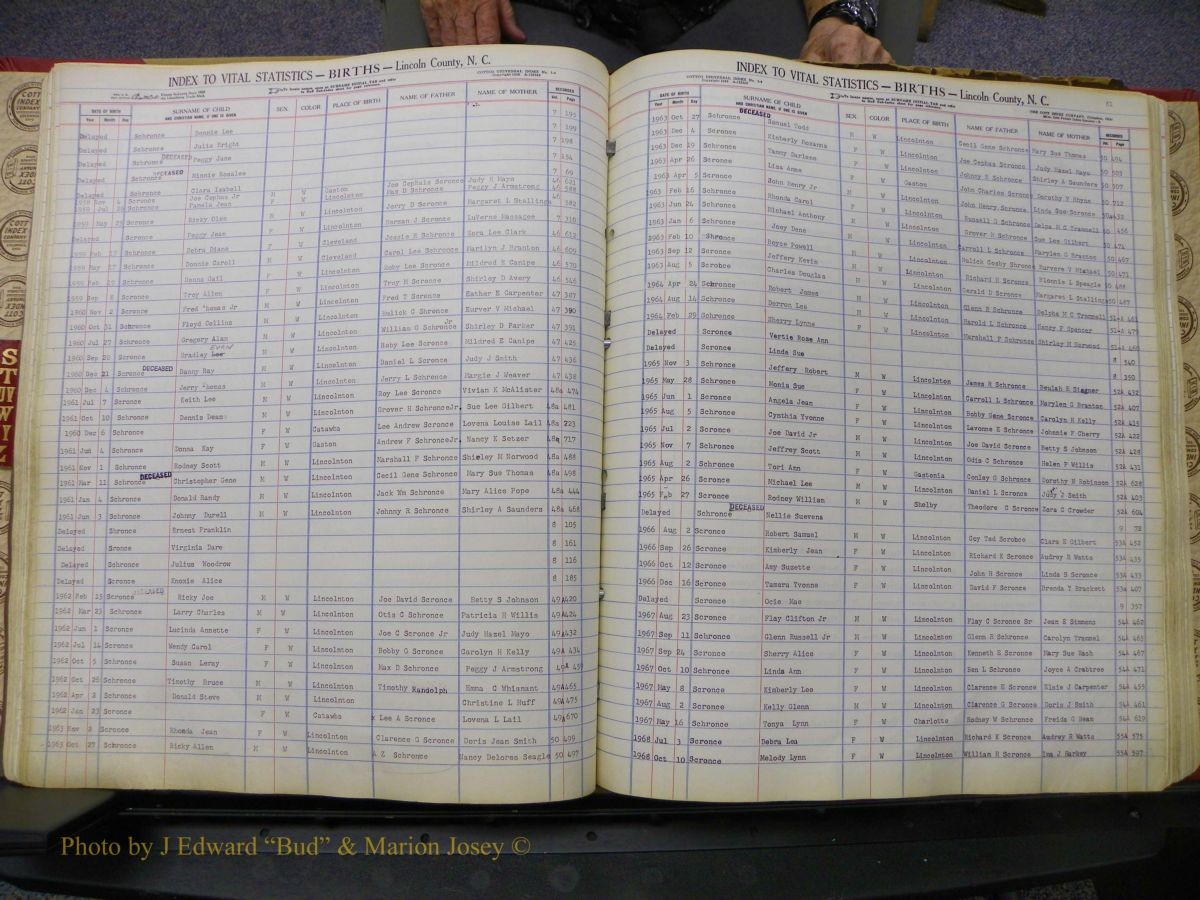 INDEX TO VITAL STATISTICS — BIRTHS — Lincoln County, N. C.
DATE OF BIRTH SURNAME OF CHILD SEX COLOR PLACE OF BIRTH NAME OF FATHER NAME OF MOTHER RECORDED
Year Month Day AND CHRISTIAN NAME, IF ONE IS GIVEN Vol. Page
Delayed Schronce Dennie Lee 7 195
Delayed Schronce Julia Bright 7 199
Delayed Schronce DECEASED Peggy Jane 7 198
Delayed Schronce DECEASED Minnie Rosalee 7 154
Delayed Scronce Clara Isabell 7 60
Joe Cephus Jr M W Gaston Joe Cephais Scronce Judy H Mayo
Pamela Jean F W Lincolnton Max D Schronce Peggy J Armstrong 46 588
Ricky Olen M W Lincolnton Jerry D Scronce Margaret L Stallings
Delayed Scronce Peggy Jean Herman J Scronce LuVerne Massagee 7 310
Debra Diane F W Cleveland Jessie R Schronce Zora Lee Clark 46 612
Donnie Caroll M W Cleveland Carol Lee Schronce Marilyn J Branton 46 609
Denna Gail F W Lincolnton Roby Lee Scronce Mildred E Canipe 46 570
Troy Allen M W Lincolnton Troy H Scronce Shirley D Avery 46 546
1960 Nov 2 Scronce Fred Thomas Jr M W Lincolnton Fred T Scronce Esther E Carpenter 47 387
1960 Oct 31 Schronce Floyd Collins M W Lincolnton Hulick C Shronce Eurver V Michael 47 390
1960 Jul 27 Schronce Gregory Alan M W Lincolnton William G Schronce Jr Shirley D Parker 47 391
1960 Sep 20 Scronce Bradley Lee EVAN M W Lincolnton Roby Lee Scronce Mildred E Canipe 47 425
1960 Dec 21 Scronce DECEASED Danny Ray M W Lincolnton Daniel L Scronce Judy J Smith 47 436
1960 Dec 4 Schronce Jerry Thomas M W Lincolnton Jerry L Schronce Margie J Weaver 47 438
1961 Jul 7 Scronce Keith Lee M W Lincolnton Roy Lee Scronce Vivian K McAlister 48a 474
1961 Oct 10 Schronce Dennis Dean M W Lincolnton Grover H Schronce Jr. Sue Lee Gilbert 48a 481
1960 Dec 6 Schronce F W Catawba Lee Andrew Scronce Lovena Louise Lail 48a 723
1961 Jun 4 Scronce Donna Kay F W Gaston Andrew F Schronce Jr. Nancy K Setzer 48a 717
1961 Nov 1 Schronce Rodney Scott M W Lincolnton Marshall F Schronce Shirley M Norwood 48a 488
1961 Mar 11 Schronce DECEASED Christopher Gene M W Lincolnton Cecil Gene Schronce Mary Sue Thomas 48a 498
1961 Jan 4 Schronce Donald Randy M W Lincolnton Jack Wm Schronce Mary Alice Pope 48a 444
1961 Jun 3 Schronce Johnny Durell M W Lincolnton Johnny R Schronce Shirley A Saunders 48a 468
Delayed Shronce Ernest Franklin 8 105
Delayed Scronce Virginia Dare 8 161
Delayed Shronce Julius Woodrow 8 116
Delayed Scronce Knoxie Alice 8 185
1962 Feb 15 Scronce Ricky Joe M W Lincolnton Joe David Scronce Betty S Johnson 49A 420
1962 Mar 23 Schronce Larry Charles M W Lincolnton Otis C Schronce Patricia H Willis 49A 424
1962 Jun 1 Scronce Lucinda Annette F W Lincolnton Joe C Scronce Jr Judy Hazel Mayo 49A 432
1962 Jul 14 Scronce Wendy Carol F W Lincolnton Bobby G Scronce Carolyn H Kelly 49A 434
1962 Oct 5 Schronce Susan Leray F W Lincolnton Max D Schronce Peggy J Armstrong 49A 459
1962 Oct 26 Schronce Timothy Bruce M W Lincolnton Timothy Randolph Emma C Whisnant 49A 465
1962 Apr 2 Schronce Donald Steve M W Lincolnton Christine L Huff 49A 475
1962 Jan 23 Scronce F W Catawba Lee A Scronce Lovena L Lail 49A 670
1963 Nov 2 Scronce Rhonda Jean F W Lincolnton Clarence G Scronce Doris Jean Smith 50 499
1963 Oct 27 Schronce Ricky Allen M W Lincolnton A Z Schronce Nancy Delores Seagle 50 497
INDEX TO VITAL STATISTICS — BIRTHS — Lincoln County, N. C.
DATE OF BIRTH SURNAME OF CHILD SEX COLOR PLACE OF BIRTH NAME OF FATHER NAME OF MOTHER RECORDED
Year Month Day AND CHRISTIAN NAME, IF ONE IS GIVEN Vol. Page
1963 Oct 27 Schronce DECEASED Samuel Todd M W Lincolnton Cecil Gene Schronce Mary Sue Thomas 50 494
1963 Dec 4 Scronce Kimberly Roxanna F W Lincolnton Joe Cephas Scronce Judy Hazel Mayo 50 503
1963 Dec 19 Schronce Tammy Darlene F W Lincolnton Johnny R Schronce Shirley A Saunders 50 507
1963 Apr 26 Scronce Lisa Anne F W Gaston John Charles Scronce Dorothy R Rhyne 50 712
1963 Apr 5 Scronce John Henry Jr M W Lincolnton John Henry Scronce Linda Sue Scronce
1963 Feb 16 Schronce Rhonda Carol F W Lincolnton Russell G Schronce Delpha M C Trammell
1963 Jun 24 Schronce Michael Anthony M W Lincolnton Grover H Schronce Sue Lee Gilbert 50 474
1963 Jan 6 Schronce Joey Dene M W Lincolnton Carroll L Schronce Marylen G Branton 50 467
1963 Feb 10 Shronce Royce Powell M W Lincolnton Hulick Cosby Shronce Eurvere V Michael 50 471
1963 Sep 12 Scronce Jeffery Kevin M W Lincolnton Richard H Scronce Flonnie L Speagle 50 488
1963 Aug 5 Scrobce Charles Douglas M W Lincolnton Gerald D Scronce Margaret L Stallings 50 487
1964 Apr 24 Schronce Robert James M W Lincolnton Glenn R Schronce Delpha M C Trammell
1964 Aug 14 Schronce Darron Lee M W Lincolnton Harold L Schronce Nancy F Spencer 51-A 479
1964 Feb 29 Schronce Sherry Lynne F W Lincolnton Marshall F Schronce Shirley M Norwood
Delayed Scronce Vertie Rose Ann 8 540
Delayed Scronce Linda Sue 8 350
1965 Nov 3 Schronce Jeffery Robert M W Lincolnton James R Schronce Beulah E Stagner 52A 432
1965 May 28 Schronce Monia Sue F W Lincolnton Carroll L Schronce Marylen G Branton 52A 407
1965 Jun 1 Scronce Angela Jean F W Lincolnton Bobby Gene Scronce Carolyn H Kelly 52A 415
1965 Aug 5 Scronce Cynthia Yvonne F W Lincolnton Lavonne E Scronce Johnnie F Cherry 52A 422
1965 Jul 2 Scronce Joe David Jr M W Lincolnton Joe David Scronce Betty S Johnson 52A 428
1965 Nov 7 Schronce Jeffrey Scott M W Lincolnton Odis C Schronce Helen F Willis 52A 431
1965 Aug 2 Schronce Tori Ann F W Gastonia Conley G Schronce Dorothy N Robinson 52A 628
1965 Apr 26 Scronce Michael Lee M W Lincolnton Daniel L Scronce Judy J Smith 52A 403
1965 Feb 27 Scronce Rodney William M W Shelby Theodore C Scronce Zora C Crowder 52A 604
Delayed Schronce DECEASED Nellie Suevena 9 72
1966 Aug 2 Scronce Robert Samuel M W Lincolnton Coy Ted Scrobce Clara E Gilbert 53A 452
1966 Sep 26 Scronce Kimberly Jean F W Lincolnton Richard K Scronce Audrey R Watts 53A 435
1966 Oct 12 Scronce Amy Suzette F W Lincolnton John H Scronce Linda S Scronce 53A 433
1966 Dec 16 Scronce Tamera Yvonne F W Lincolnton David F Scronce Brenda Y Brackett 53a 407
Delayed Scronce Ocie Mae 9 357
1967 Aug 23 Scronce Flay Clifton Jr M W Lincolnton Flay C Scronce Sr Jean E Simmons 54A 462
1967 Sep 11 Schronce Glenn Russell Jr M W Lincolnton Glenn R Schronce Carolyn Trammel 54A 465
1967 Sep 24 Scronce Sherry Alice F W Lincolnton Kenneth E Scronce Mary Sue Nash 54A 467
1967 Oct 10 Schronce Linda Ann F W Lincolnton Ben L Schronce Joyce A Crabtree 54A 471
1967 May 8 Scronce Kimberly Lee F W Lincolnton Clarence E Scronce Elsie J Carpenter 54A 455
1967 Aug 2 Scronce Kelly Glenn M W Lincolnton Clarence G Scronce Doris J Smith 54A 461
1967 May 16 Schronce Tonya Lynn F W Charlotte Rodney W Schronce Freida G Dean 54A 619
1968 Jul 3 Scronce Debra Lea F W Lincolnton Richard K Scronce Audrey R Watts 55A 575
1968 Oct 10 Scronce Melody Lynn F W Lincolnton William R Scronce Iva J Barkey 55A 597
COTT INDEX COMPANY
Photo by J Edward “Bud” & Marion Josey ©